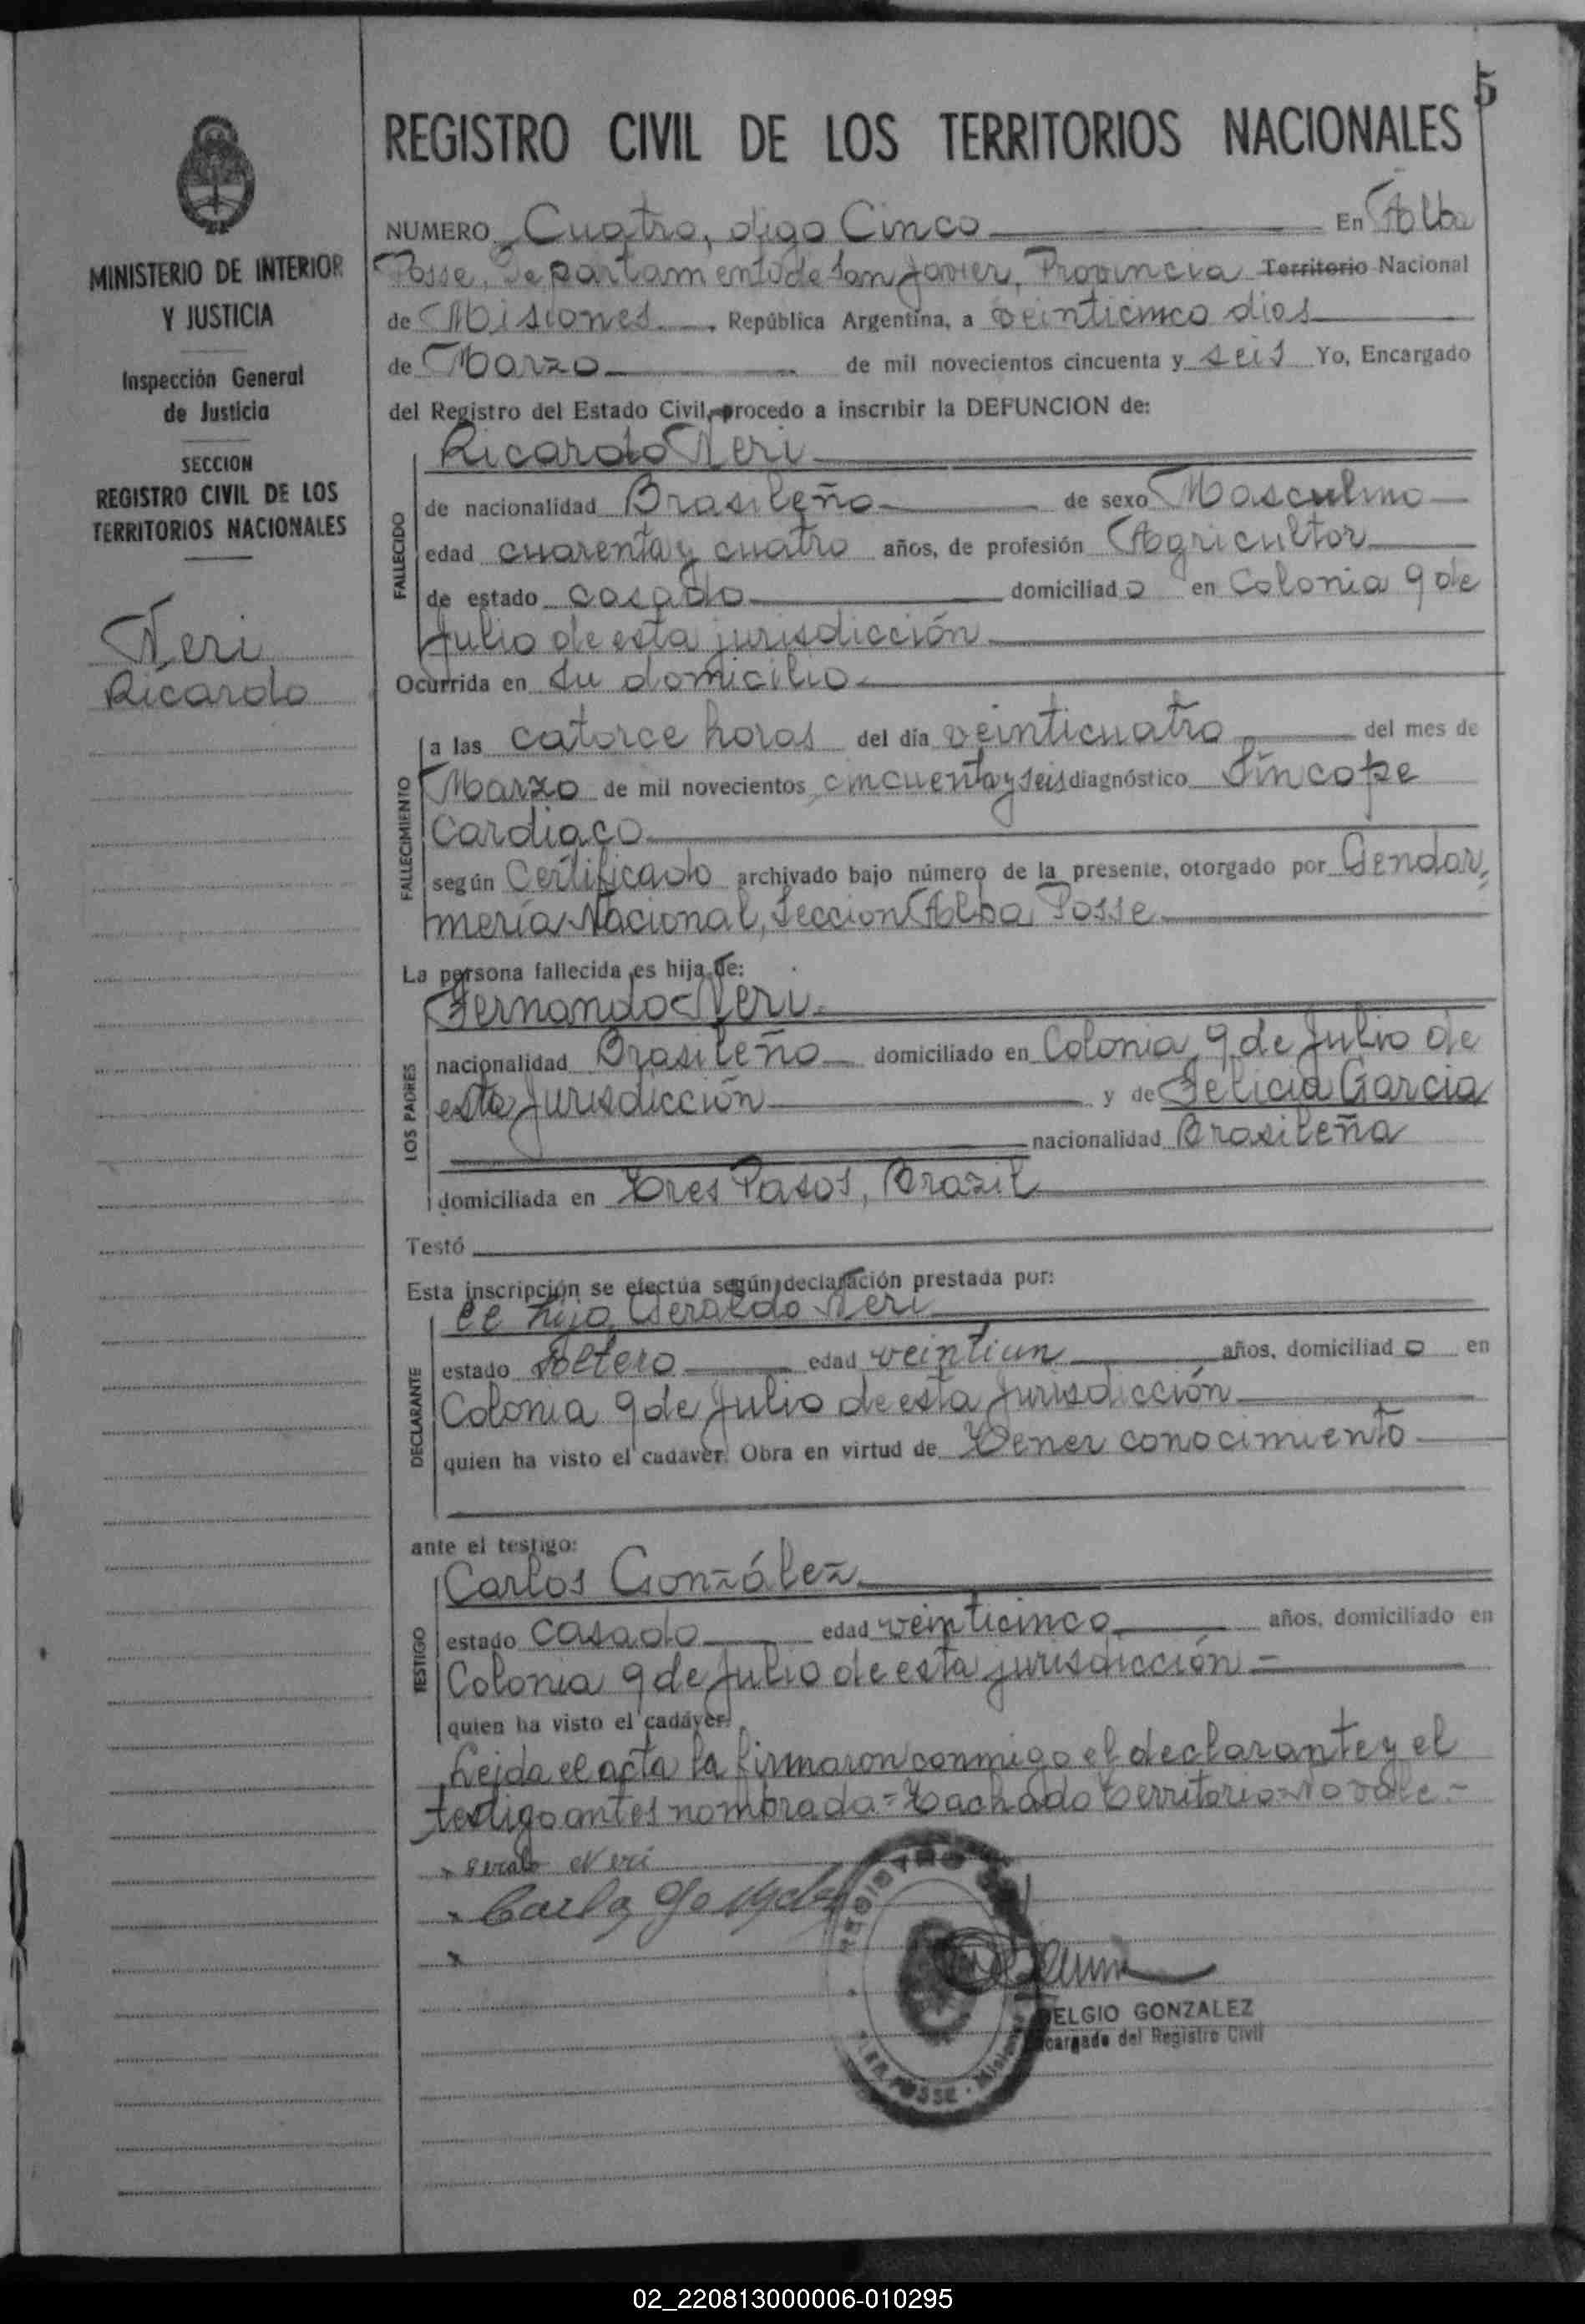 5
REGISTRO CIVIL DE LOS TERRITORIOS NACIONALES
MINISTERIO DE INTERIOR
Y JUSTICIA
Inspección General
de Justicia
SECCION
REGISTRO CIVIL DE LOS
TERRITORIOS NACIONALES
Neri
Ricardo
NUMERO Cuatro, digo Cinco En Alba
Posse, Departamento de San Javier, Provincia Territorio Nacional
de Misiones, República Argentina, a veinticinco dias
de Marzo de mil novecientos cincuenta y seis Yo, Encargado
del Registro del Estado Civil, procedo a inscribir la DEFUNCION de:
FALLECIDO
Ricardo Neri
de nacionalidad Brasileño de sexo Masculino
edad cuarenta y cuatro años, de profesión Agricultor
de estado casado domiciliad o en Colonia 9 de
Julio de esta jurisdicción
Ocurrida en su domicilio
FALLECIMIENTO
a las catorce horas del día veinticuatro del mes de
Marzo de mil novecientos cincuenta y seis diagnóstico Síncope
Cardiaco
según Certificado archivado bajo número de la presente, otorgado por Gendar,
mería Nacional, Seccion Alba Posse
La persona fallecida es hija de:
LOS PADRES
Fernando Neri
nacionalidad Brasileño domiciliado en Colonia 9 de Julio de
esta Jurisdicción y de Felicia Garcia
nacionalidad Brasileña
domiciliada en Tres Pasos, Brazil
Testó
Esta inscripción se efectúa según declaración prestada por:
DECLARANTE
el hijo Geraldo Neri
estado soltero edad veintiun años, domiciliad o en
Colonia 9 de Julio de esta Jurisdicción
quien ha visto el cadáver. Obra en virtud de Tener conocimiento
ante el testigo:
TESTIGO
Carlos González
estado casado edad veinticinco años, domiciliado en
Colonia 9 de Julio de esta jurisdicción =
quien ha visto el cadáver.
Leida el acta la firmaron conmigo el declarante y el
testigo antes nombrada = Tachado Territorio = No vale. -
x Neri
x
x
ALBA POSSE - Misiones
ELGIO GONZALEZ
cargado del Registro Civil
02_220813000006-010295